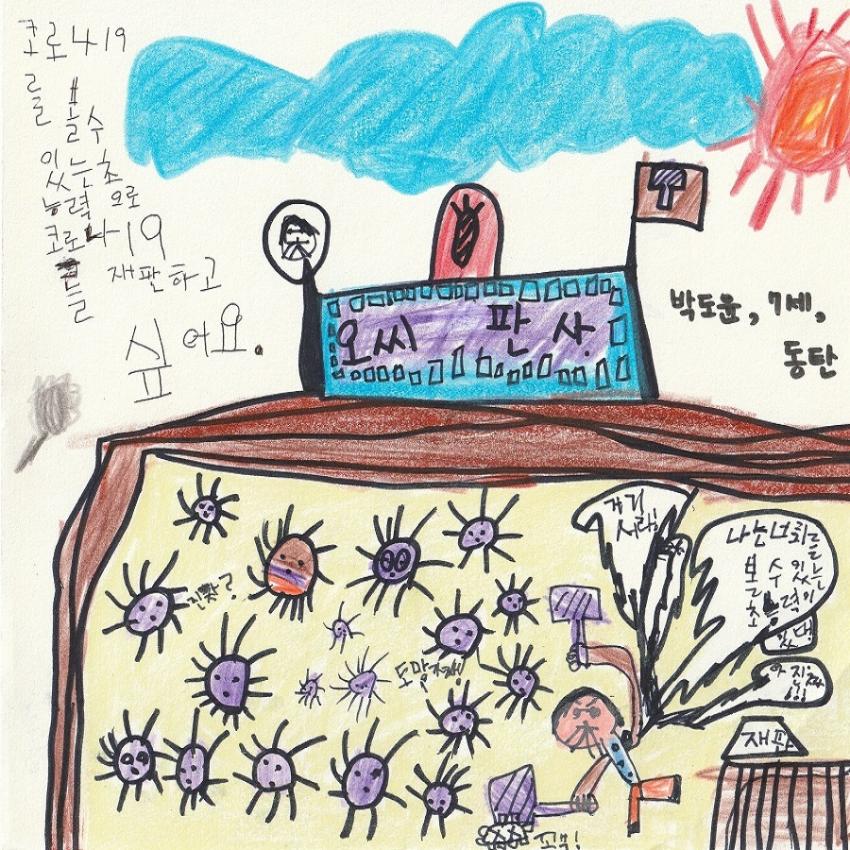 코로나19
를 볼수
있는초
능력 으로
코로나19
를 재판하고
싶어요.
오씨 판사
박도윤, 7세,
동탄
진짜?
도망가자
거기
서라!
나는너희를
볼 수 있는
초능력이
있다!
아 진짜
재판